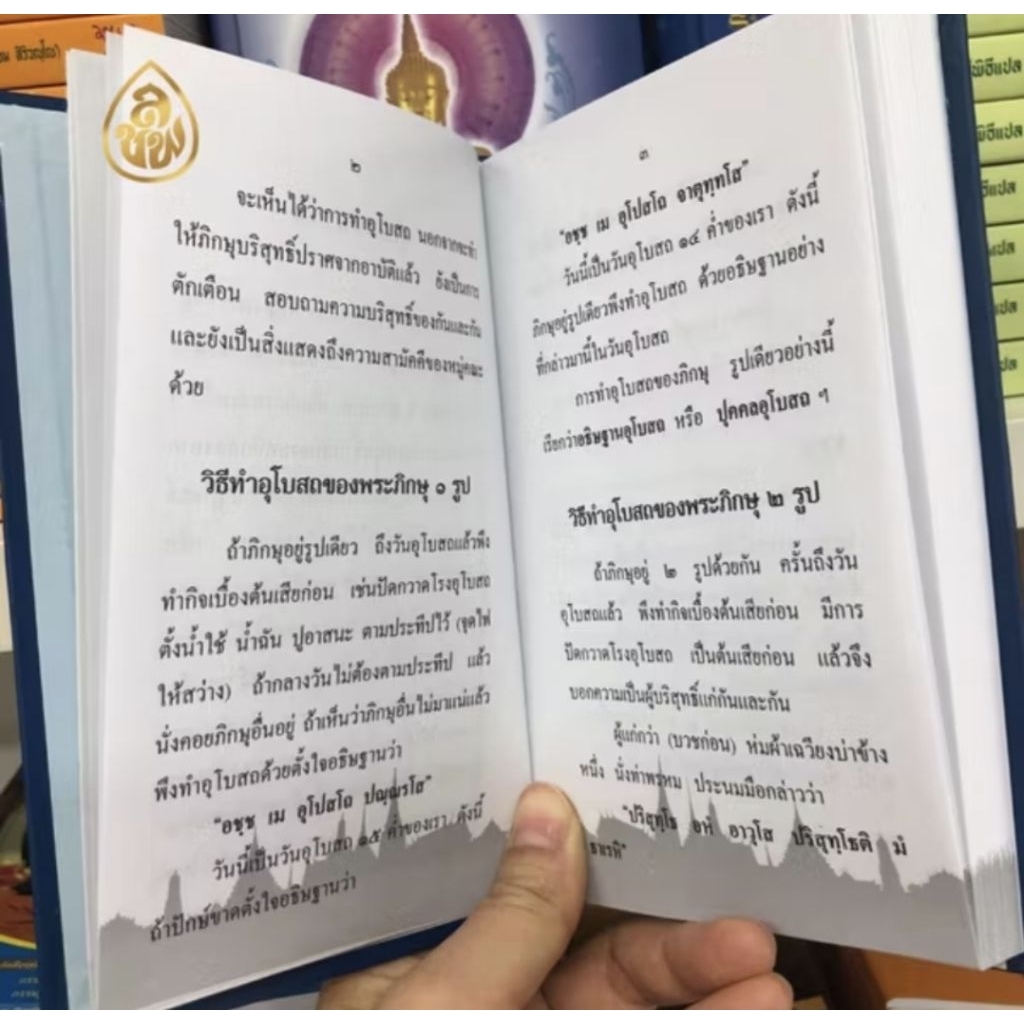 ลิ
ชัพ
๒
จะเห็นได้ว่าการทำอุโบสถ นอกจากจะทำ
ให้ภิกษุบริสุทธิ์ปราศจากอาบัติแล้ว ยังเป็นการ
ตักเตือน สอบถามความบริสุทธิ์ของกันและกัน
และยังเป็นสิ่งแสดงถึงความสามัคคีของหมู่คณะ
ด้วย
วิธีทำอุโบสถของพระภิกษุ ๑ รูป
ถ้าภิกษุอยู่รูปเดียว ถึงวันอุโบสถแล้วพึง
ทำกิจเบื้องต้นเสียก่อน เช่นปัดกวาดโรงอุโบสถ
ตั้งน้ำใช้ น้ำฉัน ปูอาสนะ ตามประทีปไว้ (จุดไฟ
ให้สว่าง) ถ้ากลางวันไม่ต้องตามประทีป แล้ว
นั่งคอยภิกษุอื่นอยู่ ถ้าเห็นว่าภิกษุอื่นไม่มาแน่แล้ว
พึงทำอุโบสถด้วยตั้งใจอธิษฐานว่า
“อชฺช เม อุโปสโถ ปณฺณรโส”
วันนี้เป็นวันอุโบสถ ๑๕ ค่ำของเรา ดังนี้
ถ้าปักษ์ขาดตั้งใจอธิษฐานว่า
๓
“อชฺช เม อุโปสโถ จาตุทฺทโส”
วันนี้เป็นวันอุโบสถ ๑๔ ค่ำของเรา ดังนี้
ภิกษุอยู่รูปเดียวพึงทำอุโบสถ ด้วยอธิษฐานอย่าง
ที่กล่าวมานี้ในวันอุโบสถ
การทำอุโบสถของภิกษุ รูปเดียวอย่างนี้
เรียกว่าอธิษฐานอุโบสถ หรือ ปุคคลอุโบสถ ฯ
วิธีทำอุโบสถของพระภิกษุ ๒ รูป
ถ้าภิกษุอยู่ ๒ รูปด้วยกัน ครั้นถึงวัน
อุโบสถแล้ว พึงทำกิจเบื้องต้นเสียก่อน มีการ
ปัดกวาดโรงอุโบสถ เป็นต้นเสียก่อน แล้วจึง
บอกความเป็นผู้บริสุทธิ์แก่กันและกัน
ผู้แก่กว่า (บวชก่อน) ห่มผ้าเฉวียงบ่าข้าง
หนึ่ง นั่งท่าพรหม ประนมมือกล่าวว่า
“ปริสุทฺโธ อหํ อาวุโส ปริสุทฺโธติ มํ
ธาเรหิ”
พิธีแปล
พิธีแปล
พิธีแปล